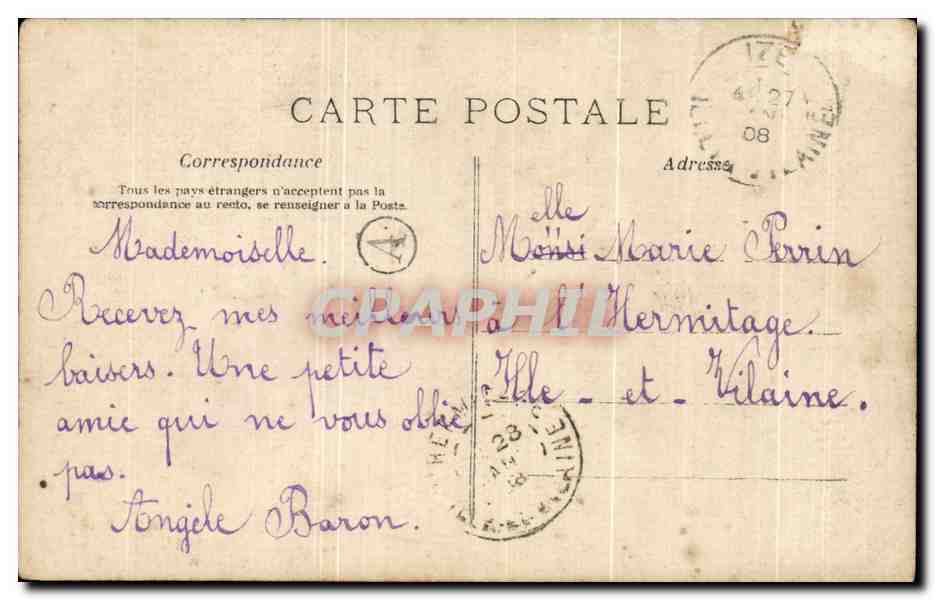 CARTE POSTALE
Correspondance
Adresse
Tous les pays étrangers n'acceptent pas la
correspondance au recto, se renseigner a la Poste.
A
Mademoiselle.
Recevez mes meilleurs
baisers. Une petite
amie qui ne vous oblie
pas.
Angèle Baron.
elle
Monsi Marie Perrin
à l'Hermitage.
Ille-et-Vilaine.
IZÉ
27
08
ILLE VILAINE
28
CARAPHIL